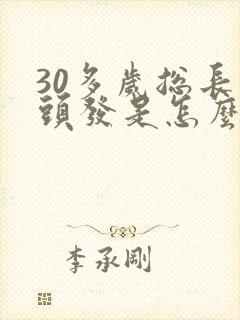 30多歲總長
頭發是怎麼
李承剛